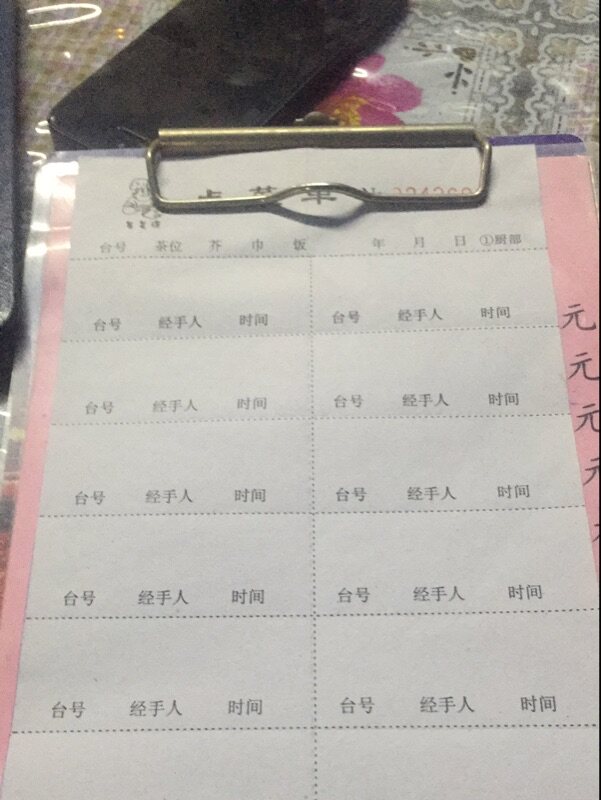 点菜单
台号 茶位 芥 巾 饭 年 月 日 ①厨部
台号 经手人 时间 台号 经手人 时间
台号 经手人 时间 台号 经手人 时间
台号 经手人 时间 台号 经手人 时间
台号 经手人 时间 台号 经手人 时间
台号 经手人 时间 台号 经手人 时间
元
元
元